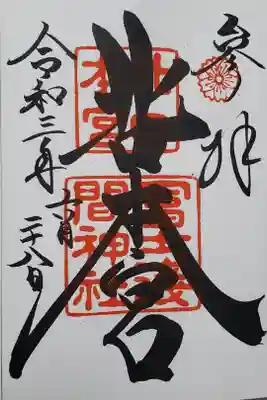 参拝
北口本宮
北口
本宮
冨士浅
間神社
令和三年
二十八日